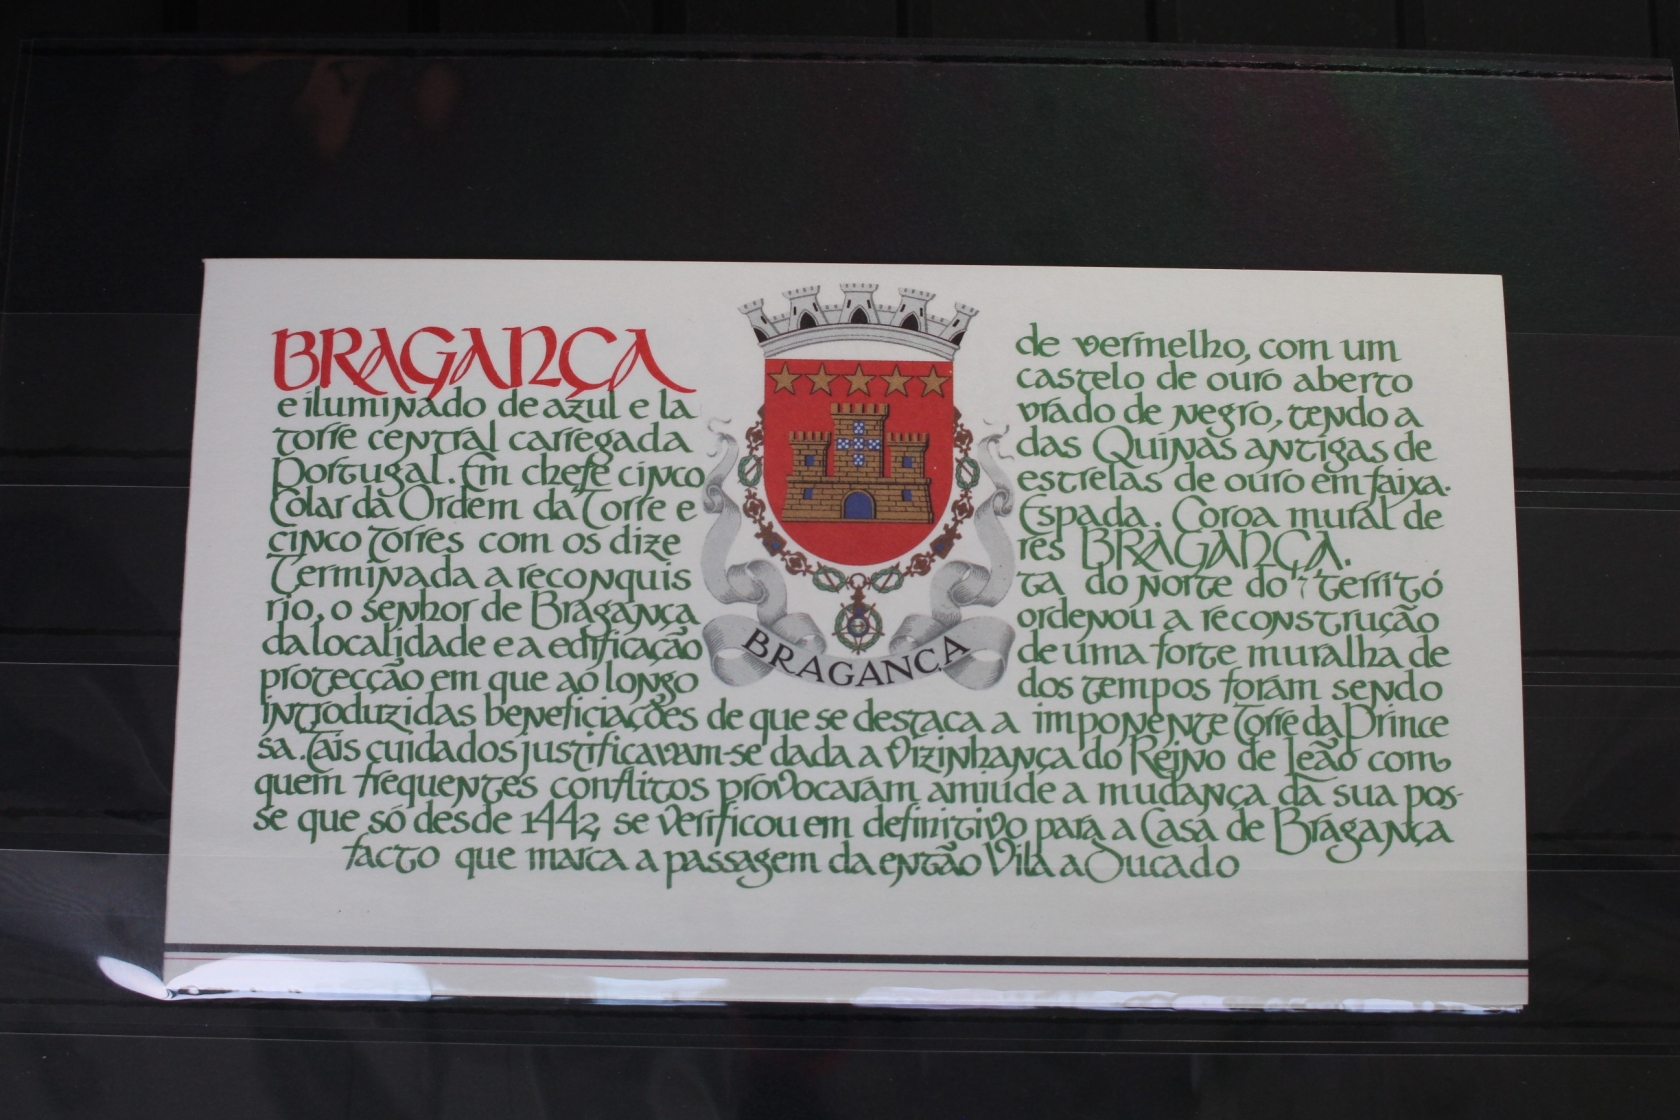 BRAGANÇA de vermelho, com um
castelo de ouro aberto
e iluminado de azul e la vrado de negro, tendo a
torre central carregada das Quinas antigas de
Portugal. Em chefe cinco estrelas de ouro em faixa.
Colar da Ordem da Torre e Espada. Coroa mural de
cinco torres com os dize res BRAGANÇA.
Terminada a reconquis ta do Norte do territó
rio, o senhor de Bragança ordenou a reconstrução
da localidade e a edificação de uma forte muralha de
protecção em que ao longo dos tempos foram sendo
introduzidas beneficiações de que se destaca a imponente Torre da Prince
sa. Tais cuidados justificavam-se dada a vizinhança do Reino de Leão com
quem frequentes conflitos provocaram amiúde a mudança da sua pos-
se que só desde 1442 se verificou em definitivo para a Casa de Bragança
facto que marca a passagem da então Vila a Ducado
BRAGANÇA